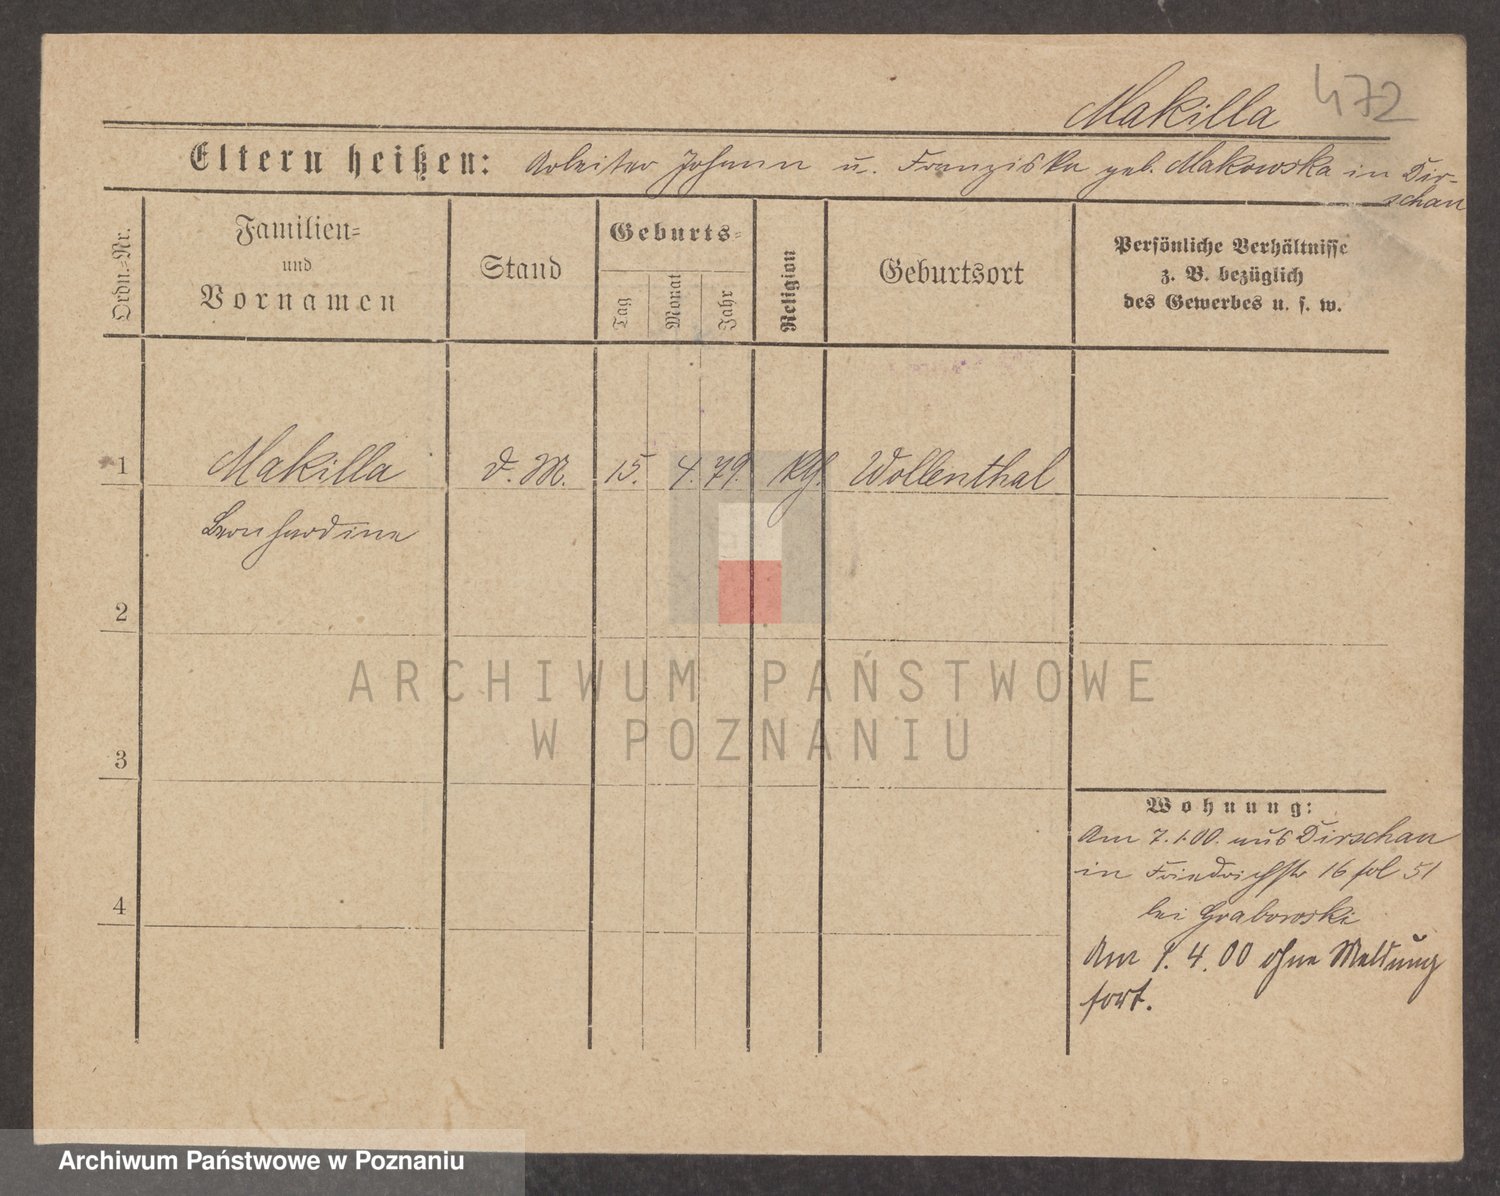 Makilla 472
Eltern heißen: Arbeiter Johann u. Franziska geb. Makowska in Dir-
schau
Ordn.-Nr.
Familien-
und
Vornamen
Stand
Geburts-
Tag
Monat
Jahr
Religion
Geburtsort
Persönliche Verhältnisse
z. B. bezüglich
des Gewerbes u. s. w.
1 Makilla d. M. 15. 4. 79. kth. Wollenthal
Bernhardine
2
3
4
Wohnung:
Am 7.1.00. aus Dirschau
in Friedrichstr 16 fol 51
bei Grabowski
Am 1. 4. 00 ohne Meldung
fort.
ARCHIWUM PAŃSTWOWE
W POZNANIU
Archiwum Państwowe w Poznaniu